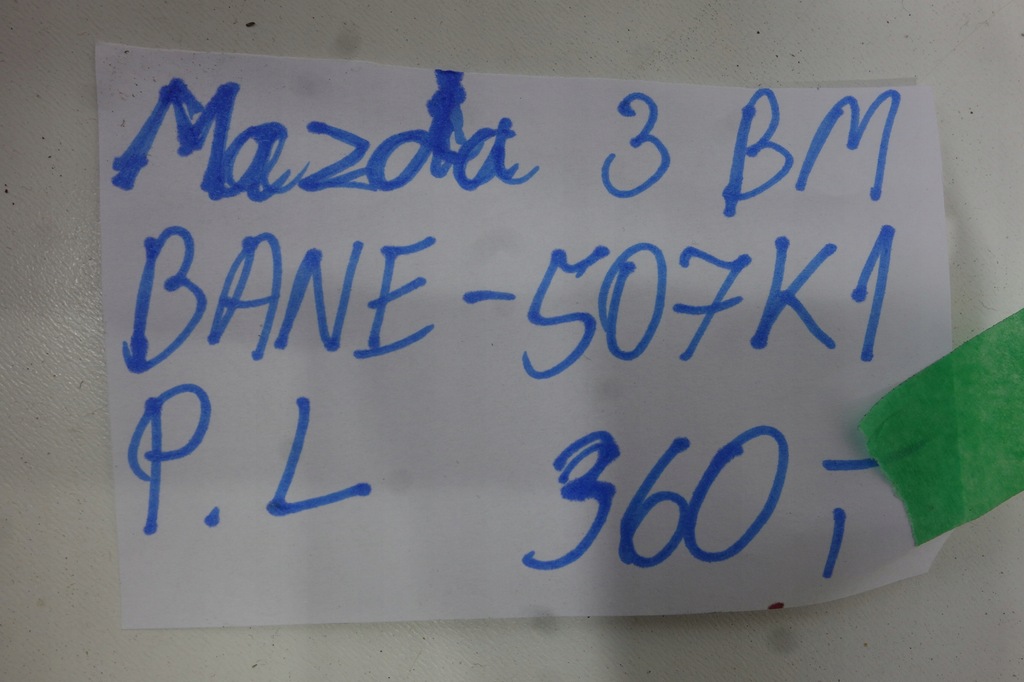 Mazda 3 BM
BANE-507K1
P.L 360,-